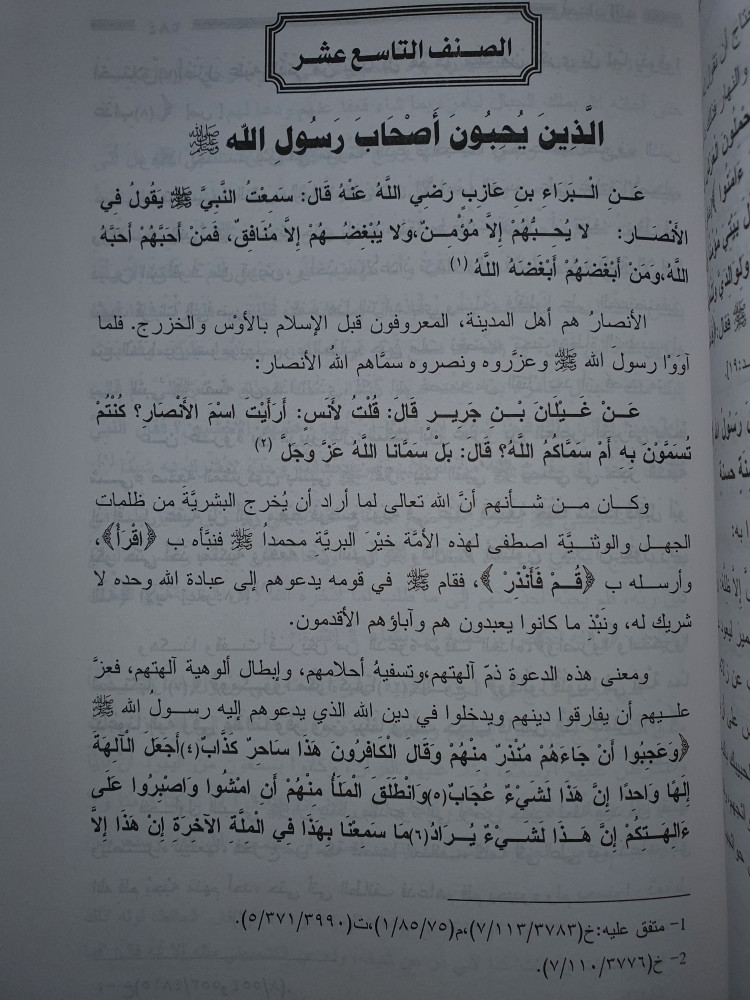 الصنف التاسع عشر
الَّذِينَ يُحِبُونَ أَصْحَابَ رَسُولِ الله ﷺ
عَنِ الْبَرَاءِ بنِ عَازِبٍ رَضِي اللهُ عَنْهُ قَالَ: سَمِعْتُ النَّبِيَّ ﷺ يَقُولُ فِي
الأَنْصَارِ: لا يُحِبُّهُمْ إِلاَّ مُؤْمِنٌ،وَلا يُبْغِضُهُمْ إِلاَّ مُنَافِقٌ، فَمَنْ أَحَبَّهُمْ أَحَبَّهُ
اللَّهُ،وَمَنْ أَبْغَضَهُمْ أَبْغَضَهُ اللَّهُ (١)
الأنصارُ هم أهل المدينة، المعروفون قبل الإسلام بالأوْس والخزرج. فلما
آوَوْا رسول الله ﷺ وعزَّروه ونصروه سمَّاهم اللهُ الأنصار:
عَنْ غَيْلَانَ بْنِ جَرِيرٍ قَالَ: قُلْتُ لأَنَسٍ: أَرَأَيْتَ اسْمَ الأَنْصَارِ؟ كُنْتُمْ
تُسَمَّوْنَ بِهِ أَمْ سَمَّاكُمُ اللَّهُ؟ قَالَ: بَلْ سَمَّانَا اللَّهُ عَزَّ وَجَلَّ (٢)
وكان من شأنهم أنَّ الله تعالى لما أراد أن يُخرج البشريَّة من ظلمات
الجهل والوثنيَّة اصطفى لهذه الأمَّة خيْرَ البريَّةِ محمداً ﷺ فنبَّأه ب ﴿اقْرَأْ﴾،
وأرسله ب ﴿قُمْ فَأَنْذِرْ﴾، فقام ﷺ في قومه يدعوهم إلى عبادة الله وحده لا
شريك له، ونَبْذِ ما كانوا يعبدون هم وآباؤهم الأقدمون.
ومعنى هذه الدعوة ذمّ آلهتهم،وتسفيهُ أحلامهم، وإبطال ألوهية آلهتهم، فعزَّ
عليهم أن يفارقوا دينهم ويدخلوا في دين الله الذي يدعوهم إليه رسولُ الله ﷺ
﴿وَعَجِبُوا أَنْ جَاءَهُمْ مُنْذِرٌ مِنْهُمْ وَقَالَ الْكَافِرُونَ هَذَا سَاحِرٌ كَذَّابٌ(٤)أَجَعَلَ الْآلِهَةَ
إِلَهًا وَاحِدًا إِنَّ هَذَا لَشَيْءٌ عُجَابٌ(٥)وَانْطَلَقَ الْمَلَأُ مِنْهُمْ أَنِ امْشُوا وَاصْبِرُوا عَلَى
ءَالِهَتِكُمْ إِنَّ هَذَا لَشَيْءٌ يُرَادُ(٦)مَا سَمِعْنَا بِهَذَا فِي الْمِلَّةِ الآخِرَةِ إِنْ هَذَا إِلاَّ
1- متفق عليه:خ(٧/١١٣/٣٧٨٣)،م(١/٨٥/٧٥)،ت(٥/٣٧١/٣٩٩٠).
2- خ(٧/١١٠/٣٧٧٦).